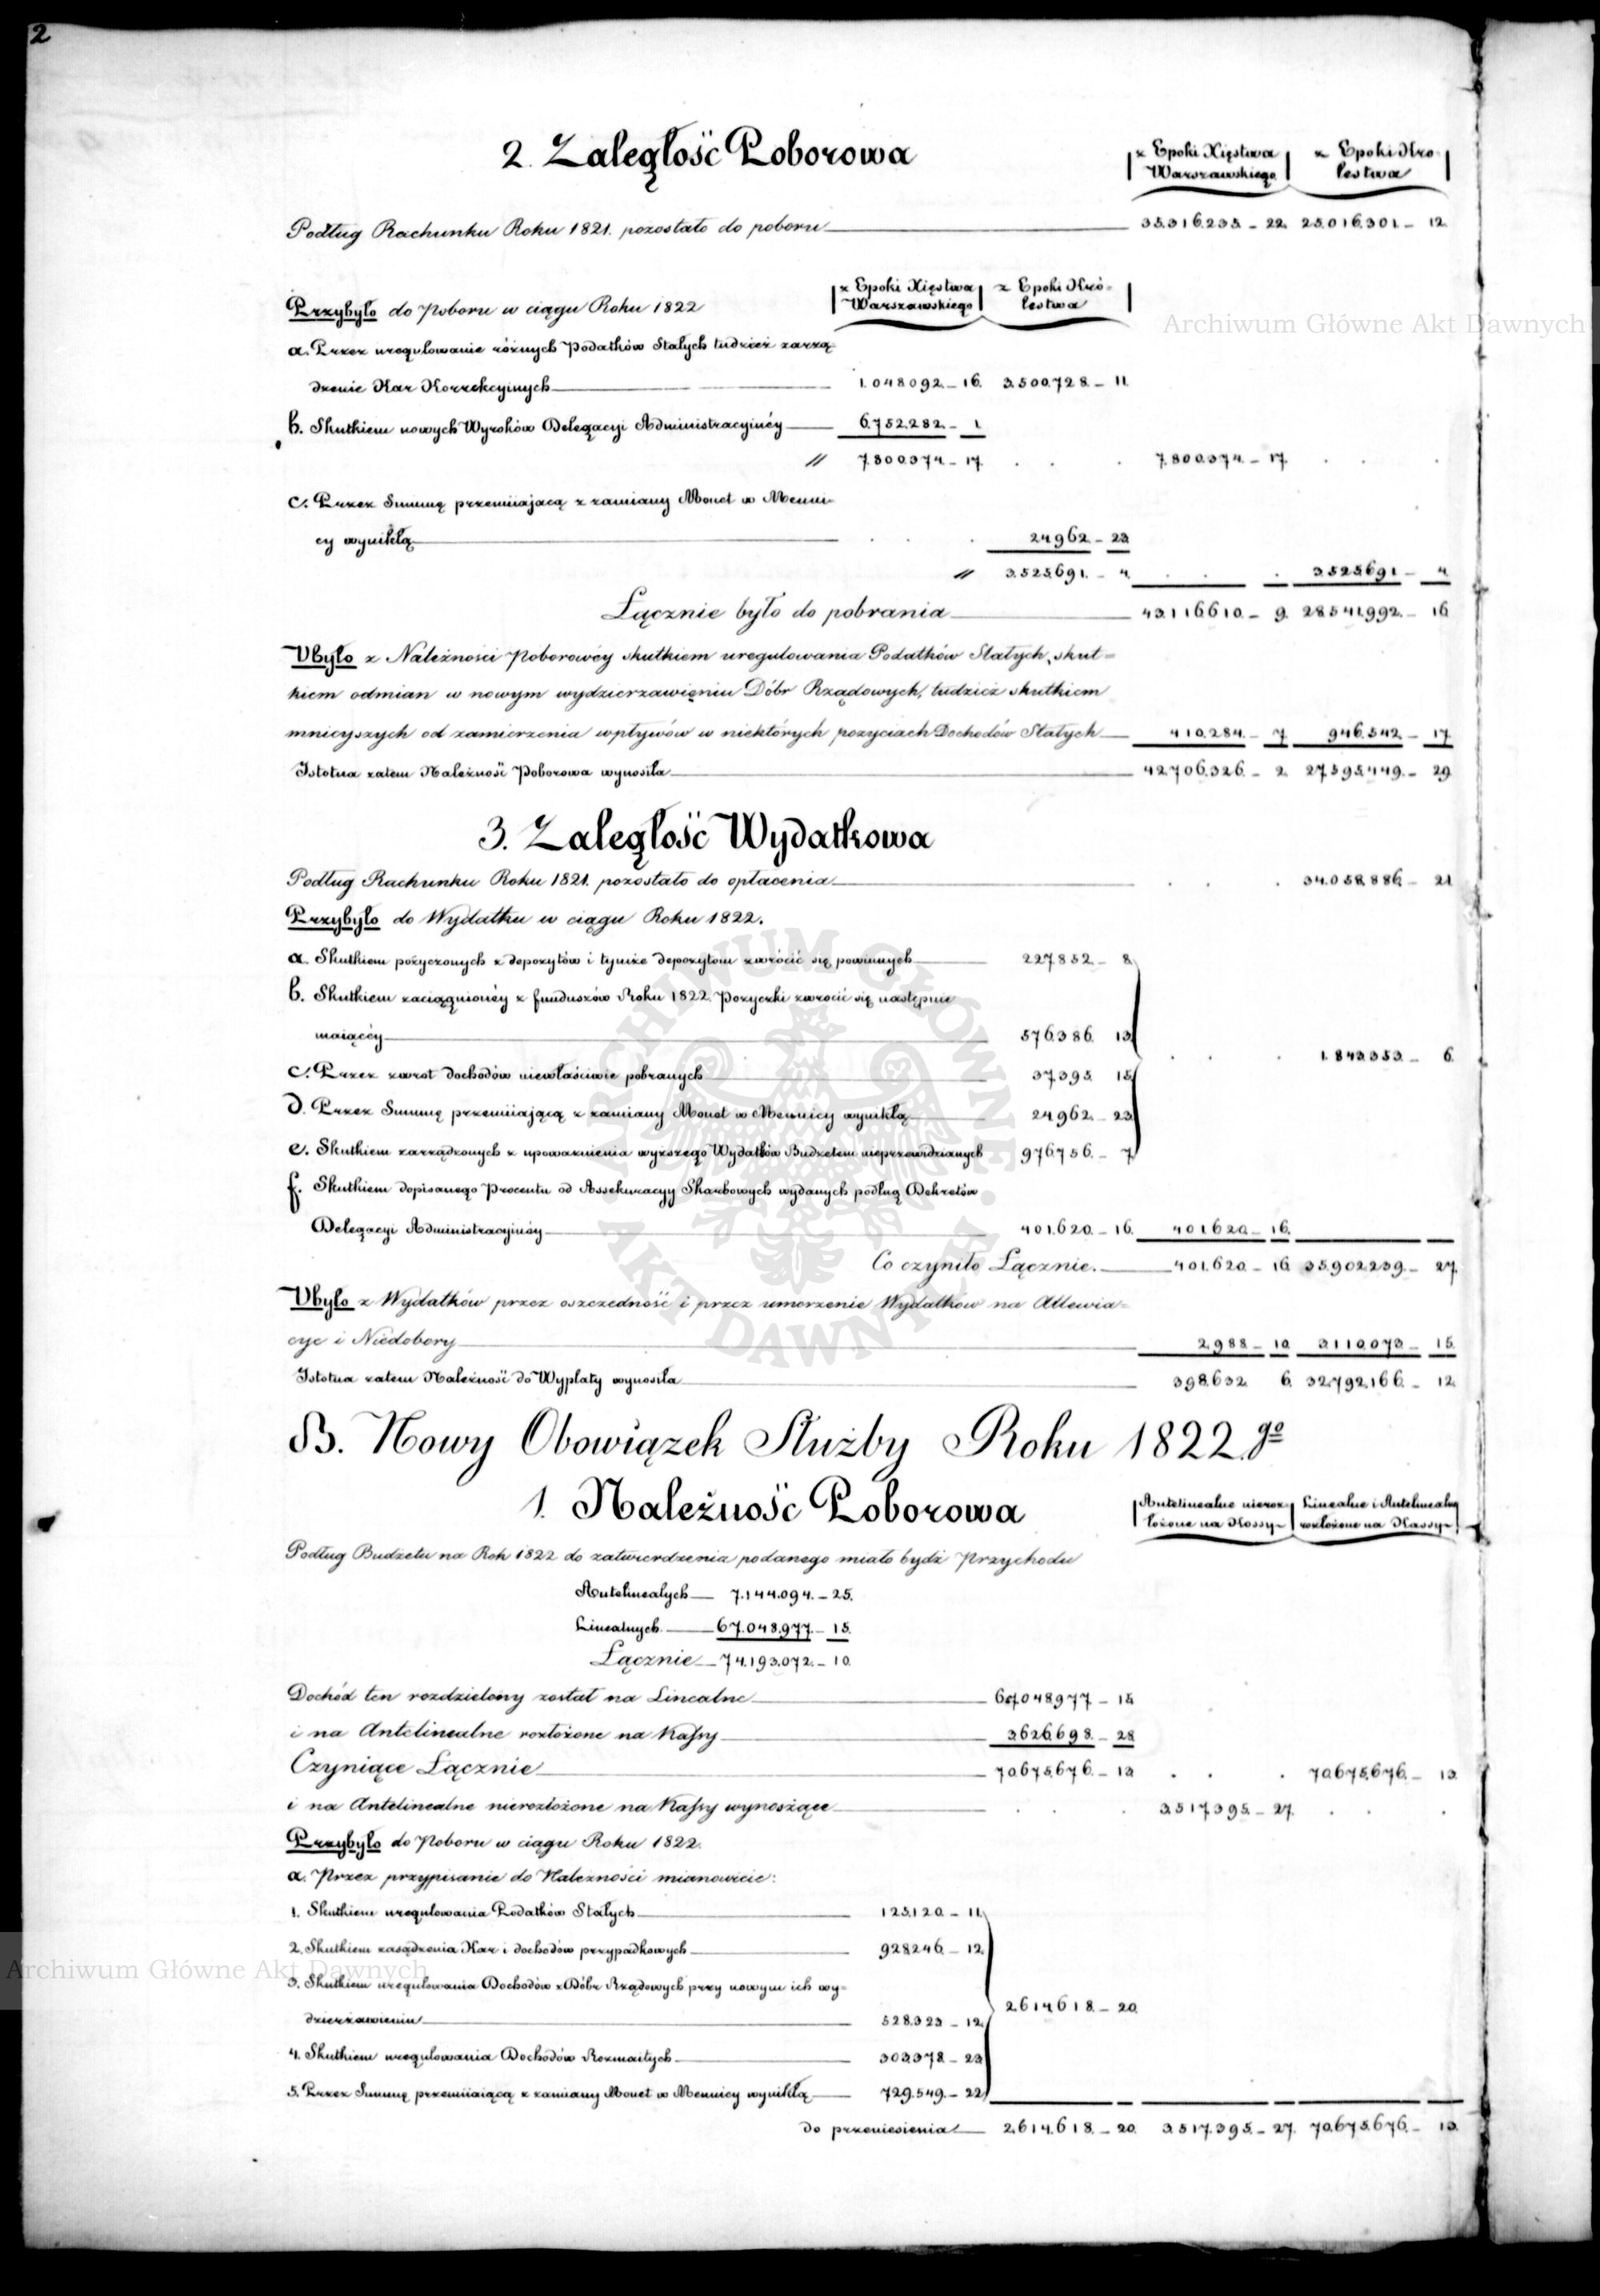 2
2. Zaległość Poborowa
z Epoki Xięstwa Warszawskiego
z Epoki Kro lestwa
Podług Rachunku Roku 1821. pozostało do poboru 35.316.235. – 22. 25.016.301. – 12.
z Epoki Xięstwa Warszawskiego
z Epoki Kró= lestwa
Przybyło do Poboru w ciągu Roku 1822
a. Przez uregulowanie różnych Podatków Stałych tudzież zarzą=
dzenie Kar Korrekcyinych 1.048.092. – 16. 3.500.728. – 11.
b. Skutkiem nowych Wyroków Delegacyi Administracyinéy 6.752.282. – 1
// 7.800.374. – 17. 7.800.374. – 17.
c. Przez Summę przemiiaiącą z zamiany Monet w Menni=
cy wynikłą 24.962 – 23
// 3.525.691. – 4. 3.525.691 – 4.
Łącznie było do pobrania 43.116.610. – 9. 28.541.992. – 16
Ubyło z Należności Poborowéy skutkiem uregulowania Podatków Stałych, skut=
kiem odmian w nowym wydzierzawieniu Dóbr Rządowych, tudzież skutkiem
mnieyszych od zamierzenia wpływów w niektórych pozyciach Dochodów Stałych 410.284. – 7 946.542. – 17
Istotna zatem Należność Poborowa wynosiła 42.706.326. – 2. 27.595.449. – 29
3. Zaległość Wydatkowa
Podług Rachunku Roku 1821. pozostało do opłacenia 34.058.886. – 21
Przybyło do Wydatku w ciągu Roku 1822.
a. Skutkiem pożyczonych z depozytów i tymże depozytom zwrócić się powinnych 227.852 – 8.
b. Skutkiem zaciągnionéy z funduszów Roku 1822. Pożyczki zwrócić się następnie
maiącéy 576.386. 13.
1.843.353. – 6.
c. Przez zwrot dochodów niewłaściwie pobranych 37.395. 15
d. Przez Summę przemiiaiącą z zamiany Monet w Mennicy wynikłą 24.962. – 23.
e. Skutkiem zarządzonych z upoważnienia wyższego Wydatków Budżetem nieprzewidzianych 976.756. – 7
f. Skutkiem dopisanego Procentu od Assekuracyy Skarbowych wydanych podług Dekretów
Delegacyi Administracyinéy 401.620. – 16. 401.620. – 16.
Co czyniło Łącznie. 401.620. – 16 35.902.239. – 27.
Ubyło z Wydatków przez oszczędność i przez umorzenie Wydatków na Allewia=
cye i Niedobory 2.988 – 10 3.110.073. – 15.
Istotna zatem Należność do Wypłaty wynosiła 398.632. 6. 32.792.166. – 12.
B. Nowy Obowiązek Służby Roku 1822.go
1. Należność Poborowa
Antelinealne nieroz= łożone na Kassy
Linealne i Antelinealne rozłożone na Kassy
Podług Budżetu na Rok 1822 do zatwierdzenia podanego miało bydź Przychodu
Antelinealych 7.144.094. – 25.
Linealnych 67.048.977. – 15.
Łącznie 74.193.072. – 10.
Dochód ten rozdzielony został na Linealne 67.048.977 – 15
i na Antelinealne rozłożone na Kassy 3.626.698. – 28
Czyniące Łącznie 70.675.676. – 13 70.675.676. – 13.
i na Antelinealne nierozłożone na Kassy wynoszące 3.517.395. – 27.
Przybyło do Poboru w ciągu Roku 1822.
a. Przez przypisanie do Należności mianowicie:
1. Skutkiem uregulowania Podatków Stałych 125.120. – 11.
2. Skutkiem zasądzenia Kar i dochodów przypadkowych 928.246. – 12.
3. Skutkiem uregulowania Dochodów z Dóbr Rządowych przy nowym ich wy=
2.614.618. – 20.
dzierżawieniu 528.323 – 12.
4. Skutkiem uregulowania Dochodów Rozmaitych 303.378. – 23
5. Przez Summę przemiiaiącą z zamiany Monet w Mennicy wynikłą 729.549. – 22
do przeniesienia 2.614.618. – 20. 3.517.395. – 27. 70.675.676. – 13.
Archiwum Główne Akt Dawnych
Archiwum Główne Akt Dawnych
ARCHIWUM GŁÓWNE AKT DAWNYCH